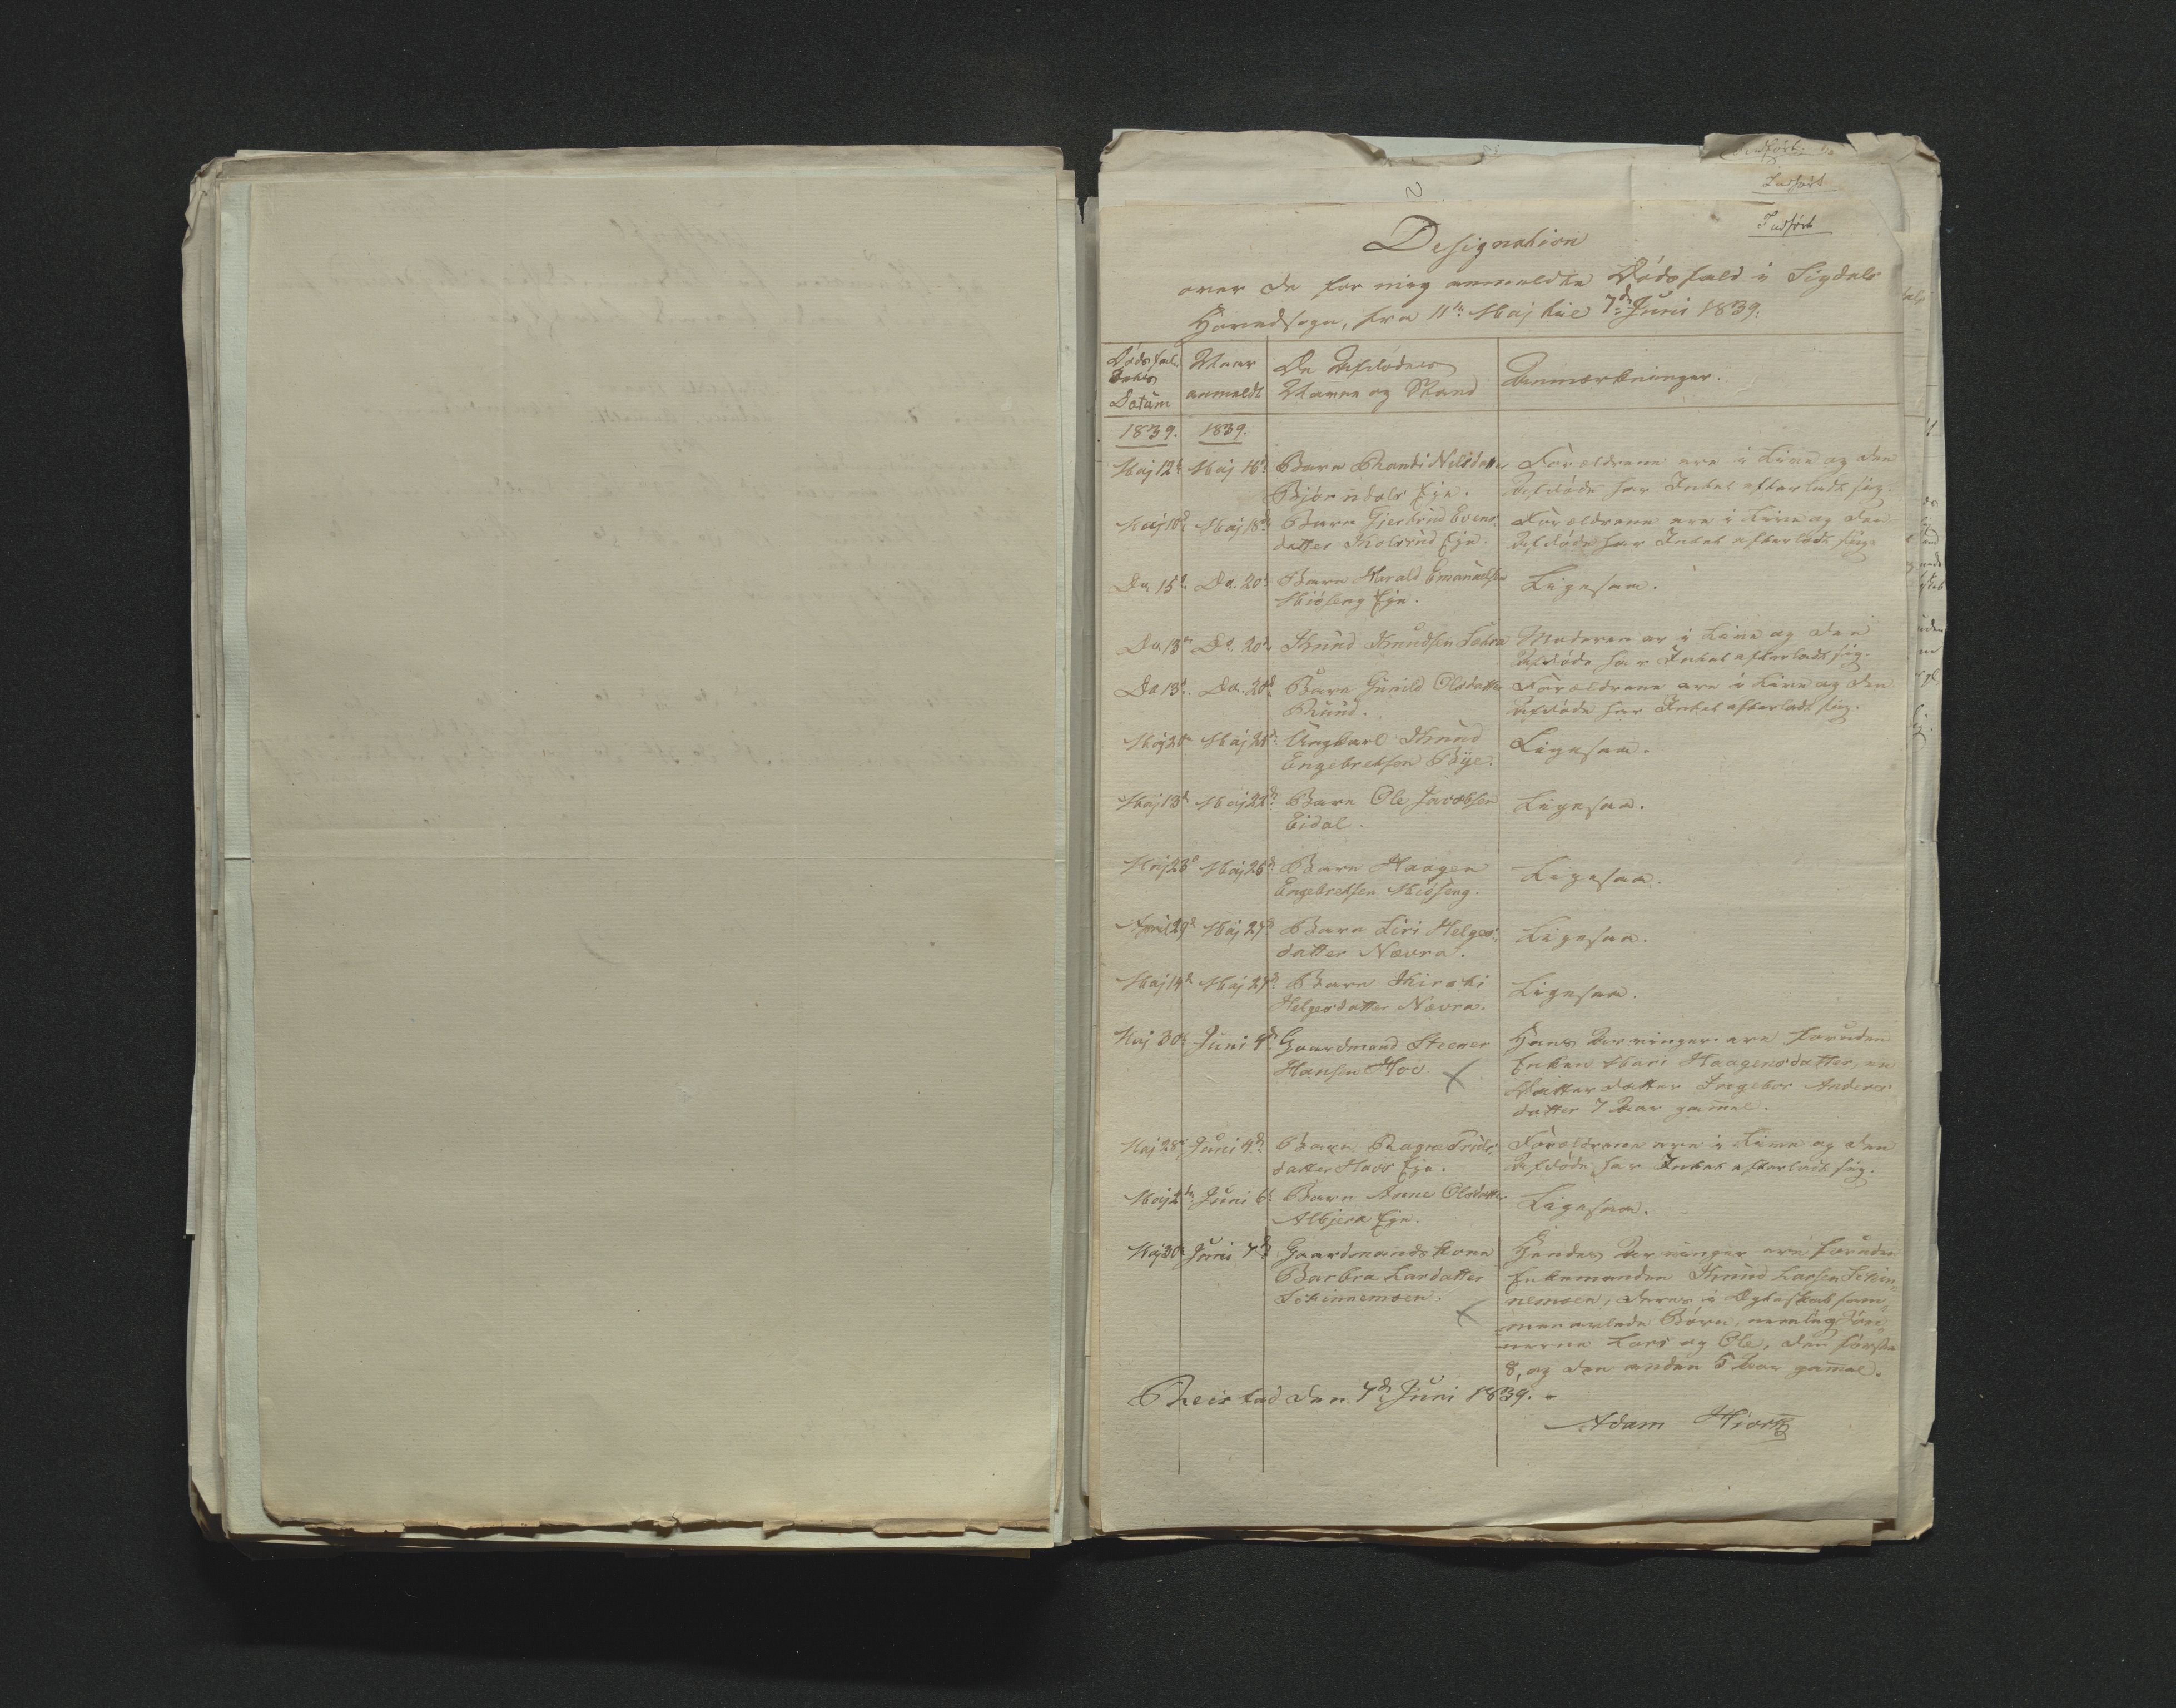 Indført
Indført
Designation
over de for mig anmeldte Dødsfald i Sigdals
Hovedsogn, fra 11te Maj til 7de Juni 1839.
Dødsfal-
dets
Datum
Naar
anmeldt
De Afdødes
Navne og Stand
Anmærkninger.
1839. 1839.
Maj 12te Maj 16de Barn Randi Nilsdatter Forældrene ere i Live og den
Bjørndals Eje. Afdøde har Intet efterladt sig.
Maj 10de Maj 18de Barn Gjertrud Evens- Forældrene ere i Live og den
datter Kolsrud Eje. Afdøde har Intet efterladt sig.
Do. 15de Do. 20de Barn Harald Emanuelsen Ligesaa.
Miøseng Eje.
Do. 13de Do. 20de Knud Knudsen Moderen er i Live og den
Afdøde har Intet efterladt sig.
Do 13de Do. 20de Barn Gunild Olsdatter Forældrene ere i Live og den
Ruud. Afdøde har Intet efterladt sig.
Maj 20de Maj 21de Ungkarl Knud Ligesaa.
Engebretsen Bye.
Maj 13de Maj 22de Barn Ole Jacobsen Ligesaa.
Eidal.
Maj 23de Maj 26de Barn Haagen Ligesaa.
Engebretsen Miøseng.
April 29de Maj 27de Barn Siri Helges- Ligesaa.
datter Nævra.
Maj 14de Maj 27de Barn Kirsti Ligesaa.
Helgesdatter Nævra.
Maj 30te Juni 4de Gaardmand Steener Hans Arvinger ere foruden
Hansen Hov. Enken Mari Haagensdatter, en
Datterdatter Ingebor Anders-
datter 7 Aar gammel.
Maj 28de Juni 4de Barn Ragne Forældrene ere i Live og den
datter Hovs Eje. Afdøde har Intet efterladt sig.
Maj 2den Juni 6te Barn Anne Olsdatter Ligesaa.
Albjera Eje.
Maj 30te Juni 7de Gaardmandskone Hendes Arvinger ere foruden
Barbra Larsdatter Enkemanden Knud Larsen Schin-
Schinnemoen. nemoen, deres i Ægteskab sam-
menavlede Børn, nemlig Søn-
nerne Lars og Ole, den første
8, og den anden 5 Aar gammel.
Reistad den 7de Juni 1839.
Adam Hiorth